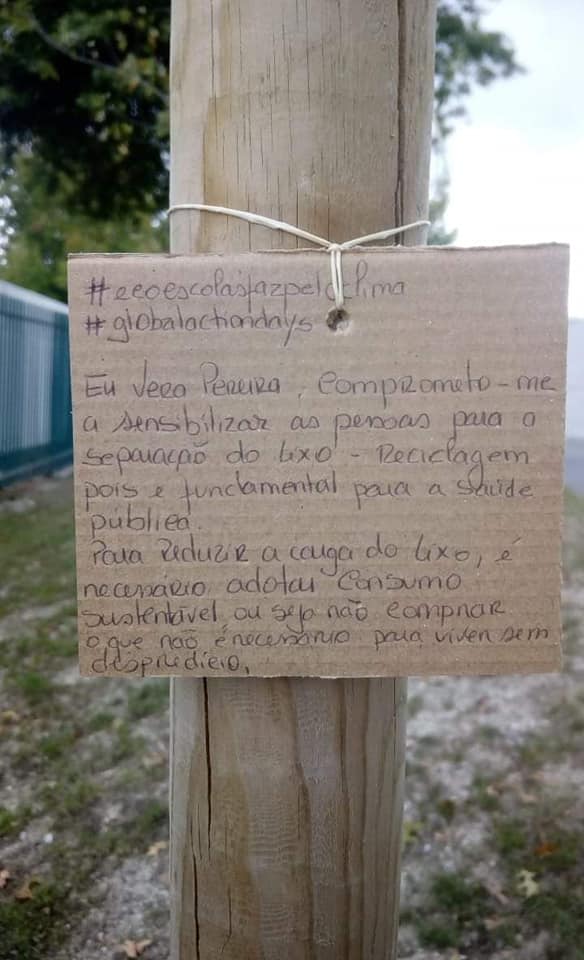 #ecoescolasfazpeloclima
#globalactiondays
Eu Vera Pereira, comprometo-me
a sensibilizar as pessoas para a
separação do lixo - Reciclagem
pois e fundamental para a saúde
pública.
Para reduzir a carga do lixo, é
necessário adotar consumo
sustentável ou seja não comprar
o que não é necessário para viver sem
despredicio.